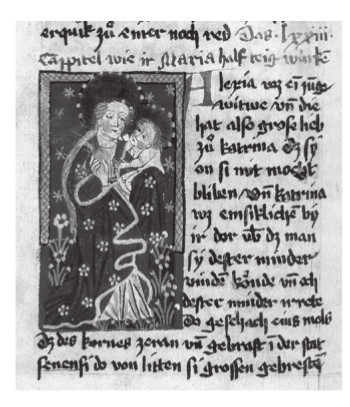 erquik zů einer noch red Das · lxxiii ·
Cappitel wie ir Maria half teig würkē
Alexia wz eī jūge
witwe vn̄ die
hat also grose lieb
zů katrina dz sy
on si nit mocht
bliben / vn̄ katrina
wz emsiklichē by
ir dor vb dz man
sy dester minder
vindē kōnde vn̄ och
dester minder irrete
Do geschach eins mols
dz des kornes zeran vn̄ gebrast ī der stat
senensi do von litten si grossen gebrestē